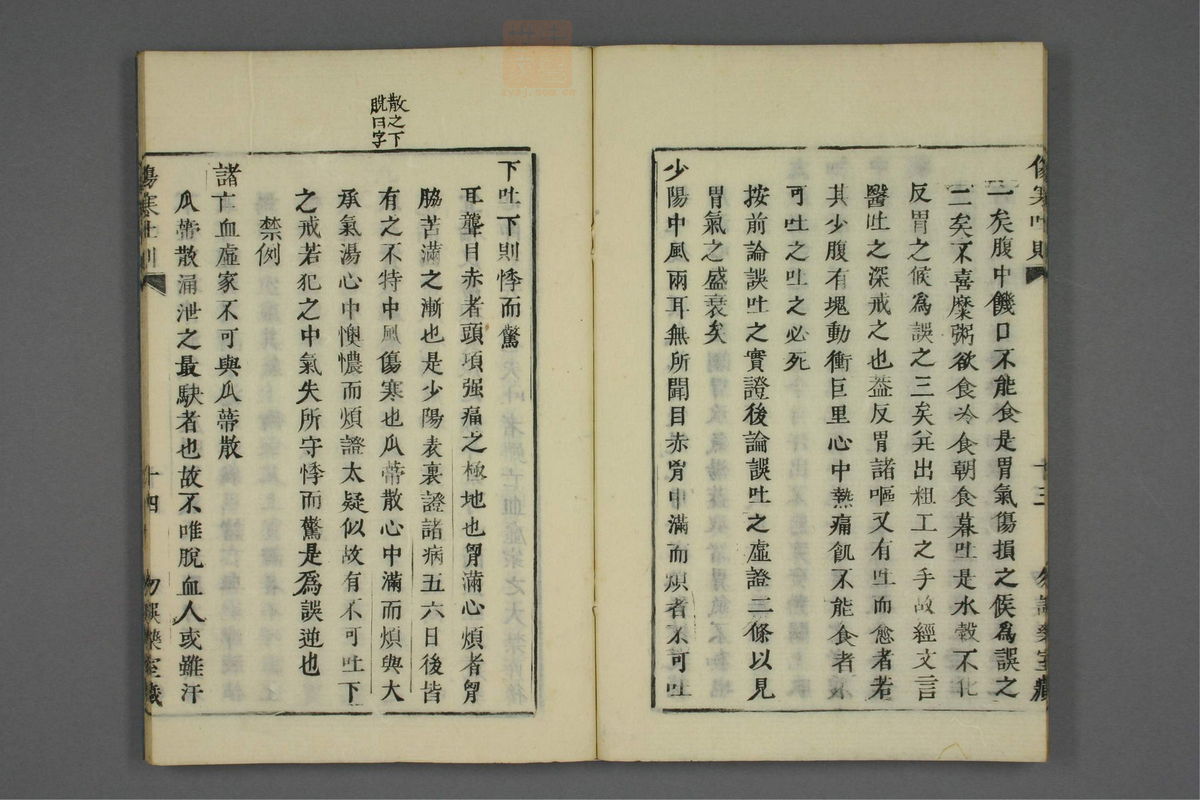 傷寒吐則　十三　勿誤藥室藏
一矣腹中饑口不能食是胃氣傷損之候爲誤之
二矣不喜糜粥欲食冷食朝食暮吐是水穀不化
反胃之候爲誤之三矣幷出粗工之手故經文言
醫吐之深戒之也葢反胃諸嘔又有吐而愈者若
其少腹有塊動衝巨里心中熱痛飢不能食者不
可吐之吐之必死
按前論誤吐之實證後論誤吐之虛證二條以見
胃氣之盛衰矣
少陽中風兩耳無所聞目赤胷中滿而煩者不可吐
下吐下則悸而驚
耳聾目赤者頭項强痛之極地也胷滿心煩者胷
脇苦滿之漸也是少陽表裏證諸病五六日後皆
有之不特中風傷寒也瓜蒂散心中滿而煩與大
承氣湯心中懊憹而煩證太疑似故有不可吐下
之戒若犯之中氣失所守悸而驚是爲誤逆也
禁例
諸亡血虛家不可與瓜蒂散
瓜蒂散涌泄之最駃者也故不唯脫血人或雖汗
傷寒吐則　十四　勿誤藥室藏
散之下
脫曰字